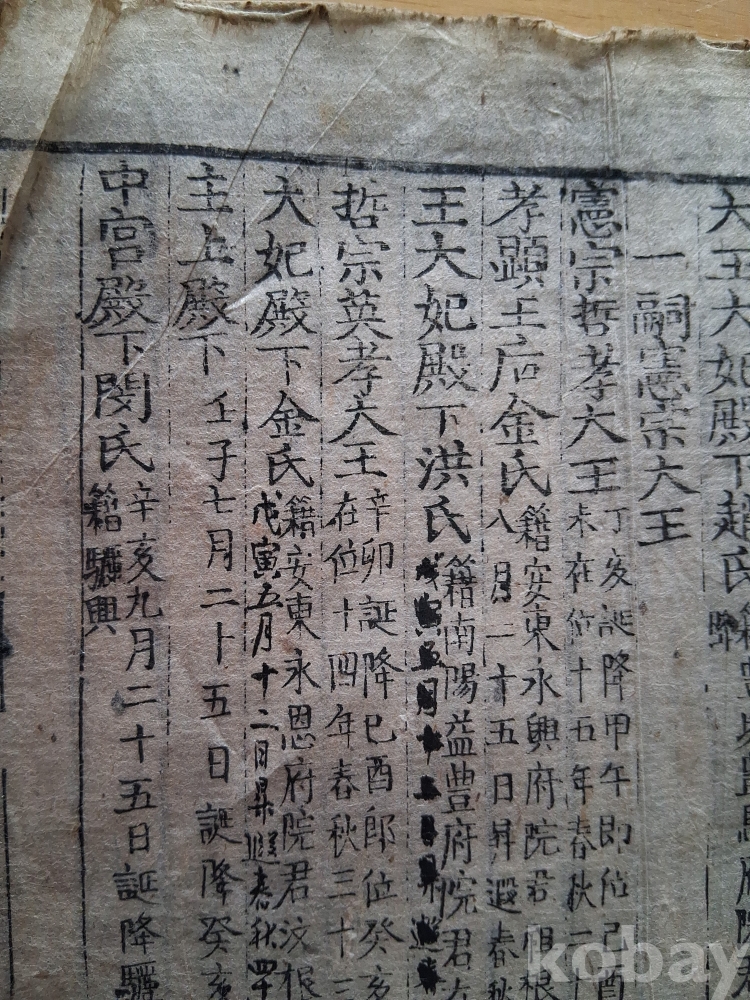 大王大妃殿下趙氏籍豊壤
一嗣憲宗大王
憲宗哲孝大王丁亥誕降甲午即位己酉
未在位十五年春秋二十
孝顯王后金氏籍安東永興府院君祖根
八月二十五日昇遐春秋
王大妃殿下洪氏籍南陽益豊府院君在
哲宗英孝大王辛卯誕降己酉郎位癸亥
在位十四年春秋三十三
大妃殿下金氏籍安東永恩府院君汶根
戊寅五月十二日昇遐春秋四十
主上殿下壬子七月二十五日誕降癸亥
中宮殿下閔氏辛亥九月二十五日誕降驪
籍驪興
kobay